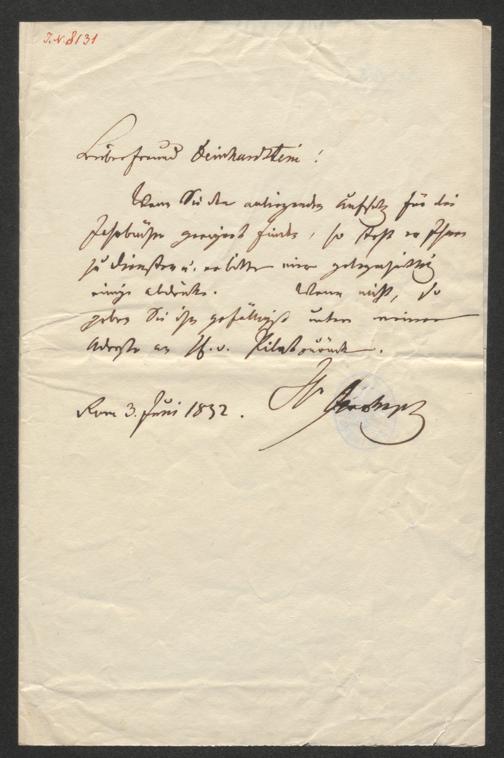 J.N. 8131
Lieber Freund Deinhardstein!
Wenn Sie den anliegenden Aufsatz für die
Jahrbücher geeignet finden, so steht er Ihnen
zu Diensten u. erbitte mir gelegenheitlich
einige Abdrücke. Wenn nicht, so
geben Sie ihn gefälligst unter meiner
Adresse an H. v. Pilat zurück.
Rom 3. Juni 1832.